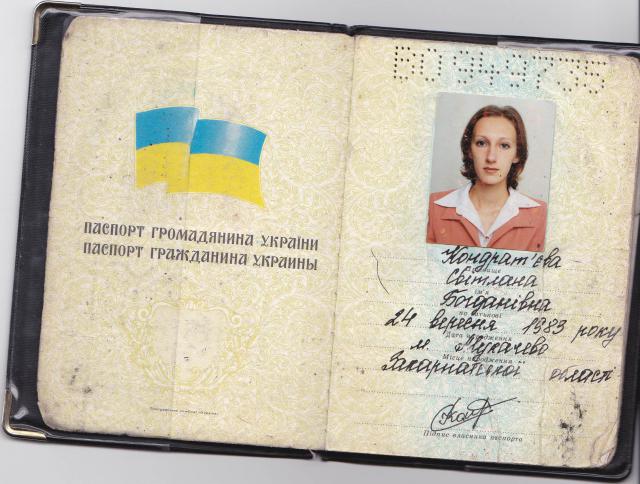 ПАСПОРТ ГРОМАДЯНИНА УКРАЇНИ
ПАСПОРТ ГРАЖДАНИНА УКРАИНЫ
Кондрат'єва
Прізвище
Світлана
Ім'я
Богданівна
по батькові
24 вересня 1983 року
Дата народження
м. Мукачево
Місце народження
Закарпатської області
Підпис власника паспорта